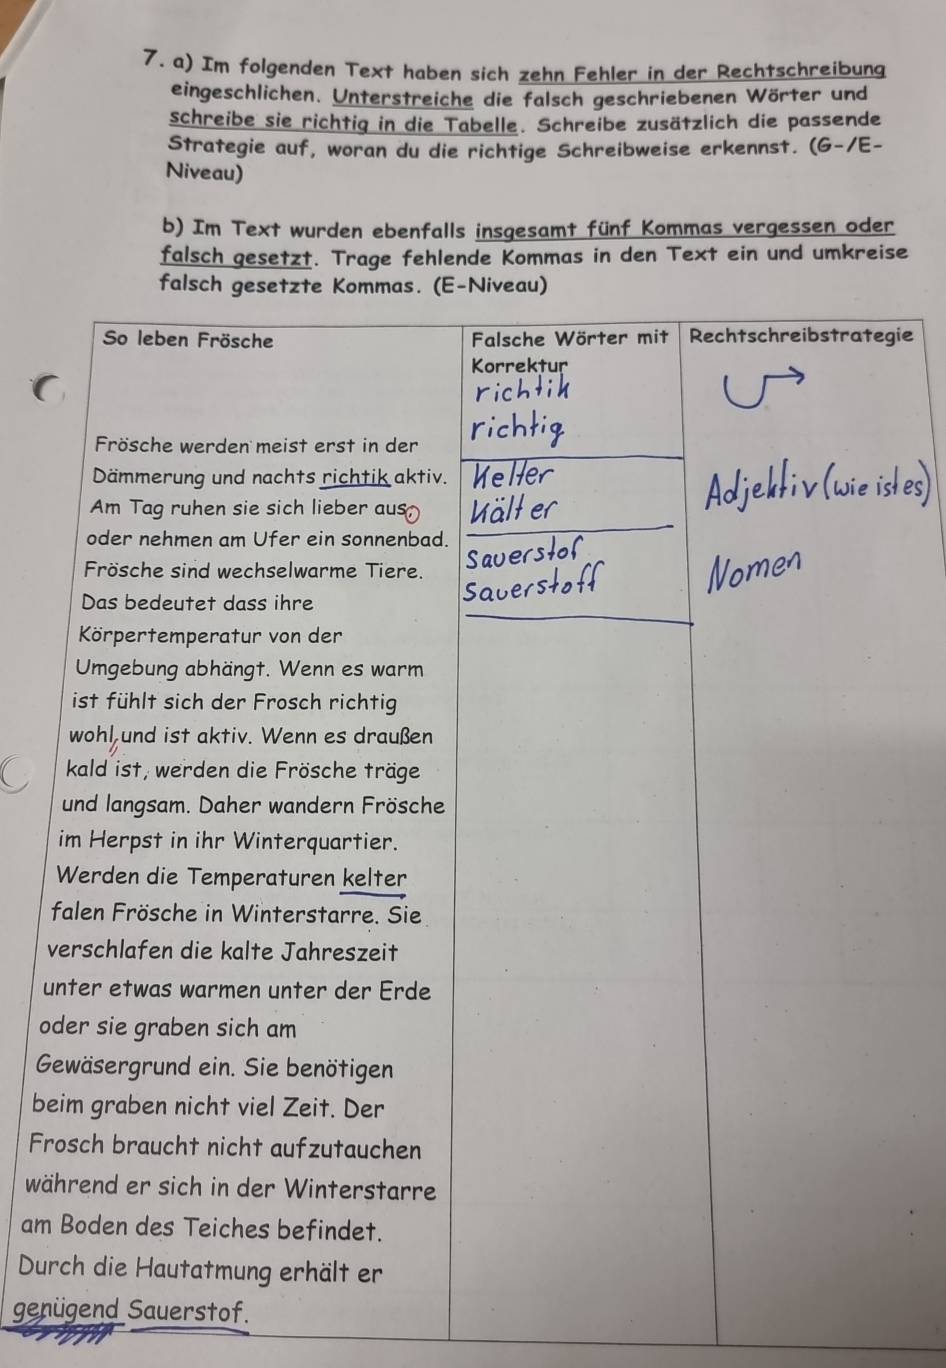 7. a) Im folgenden Text haben sich zehn Fehler in der Rechtschreibung
eingeschlichen. Unterstreiche die falsch geschriebenen Wörter und
schreibe sie richtig in die Tabelle. Schreibe zusätzlich die passende
Strategie auf, woran du die richtige Schreibweise erkennst. (G-/E-
Niveau)
b) Im Text wurden ebenfalls insgesamt fünf Kommas vergessen oder
falsch gesetzt. Trage fehlende Kommas in den Text ein und umkreise
falsch gesetzte Kommas. (E-Niveau)
So leben Frösche
Frösche werden meist erst in der
Dämmerung und nachts richtik aktiv.
Am Tag ruhen sie sich lieber aus,
oder nehmen am Ufer ein sonnenbad.
Frösche sind wechselwarme Tiere.
Das bedeutet dass ihre
Körpertemperatur von der
Umgebung abhängt. Wenn es warm
ist fühlt sich der Frosch richtig
wohl, und ist aktiv. Wenn es draußen
kald ist, werden die Frösche träge
und langsam. Daher wandern Frösche
im Herpst in ihr Winterquartier.
Werden die Temperaturen kelter
falen Frösche in Winterstarre. Sie
verschlafen die kalte Jahreszeit
unter etwas warmen unter der Erde
oder sie graben sich am
Gewäsergrund ein. Sie benötigen
beim graben nicht viel Zeit. Der
Frosch braucht nicht aufzutauchen
während er sich in der Winterstarre
am Boden des Teiches befindet.
Durch die Hautatmung erhält er
genügend Sauerstof.
Falsche Wörter mit
Korrektur
richtik
richtig
Kelter
kälter
Sauerstof
Sauerstoff
Rechtschreibstrategie
Adjektiv (wie ist es)
Nomen